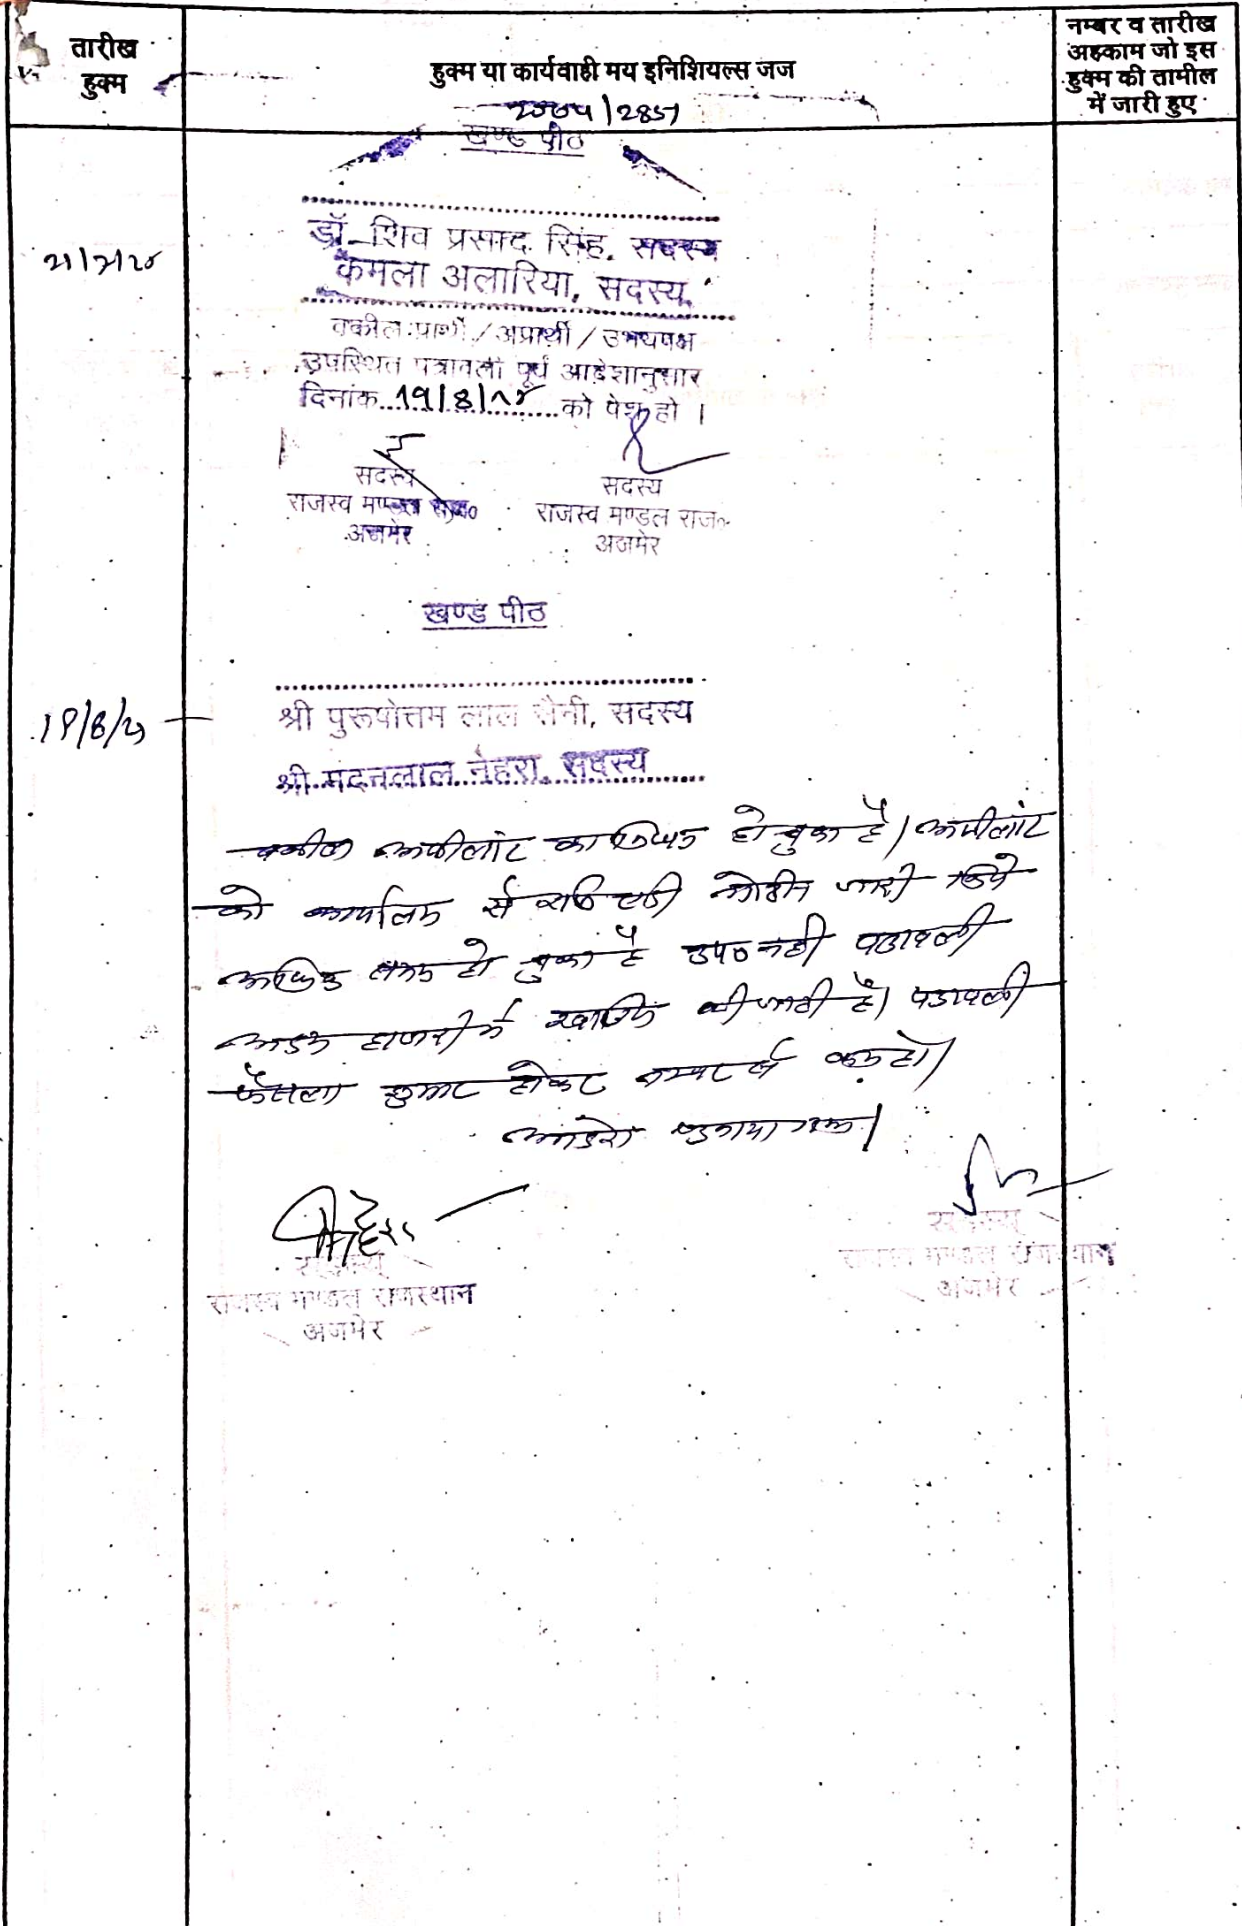 तारीख
हुक्म
हुक्म या कार्यवाही मय इनिशियल्स जज
नम्बर व तारीख
अहकाम जो इस
हुक्म की तामील
में जारी हुए
2857
खण्ड पीठ
डॉ. शिव प्रसाद सिंह, सदस्य
कमला अलारिया, सदस्य
वकील प्रार्थी / अप्रार्थी / उभयपक्ष
उपस्थित पत्रावली पूर्व आदेशानुसार
दिनांक 19/8/ को पेश हो ।
सदस्य
राजस्व मण्डल राज०
अजमेर
सदस्य
राजस्व मण्डल राज०
अजमेर
खण्ड पीठ
श्री पुरूषोत्तम लाल सैनी, सदस्य
श्री मदनलाल नेहरा, सदस्य
वकील अपीलांट का हो चुका है। अपीलांट
को कार्यालय से नोटिस जारी किये
अधिक समय हो चुका है उप० नही पत्रावली
अदम हाजरी में खारिज की जाती है। पत्रावली
फैसला शुमार होकर नम्बर से कम हो।
सदस्य
राजस्व मण्डल राजस्थान
अजमेर
सदस्य
राजस्व मण्डल राजस्थान
अजमेर